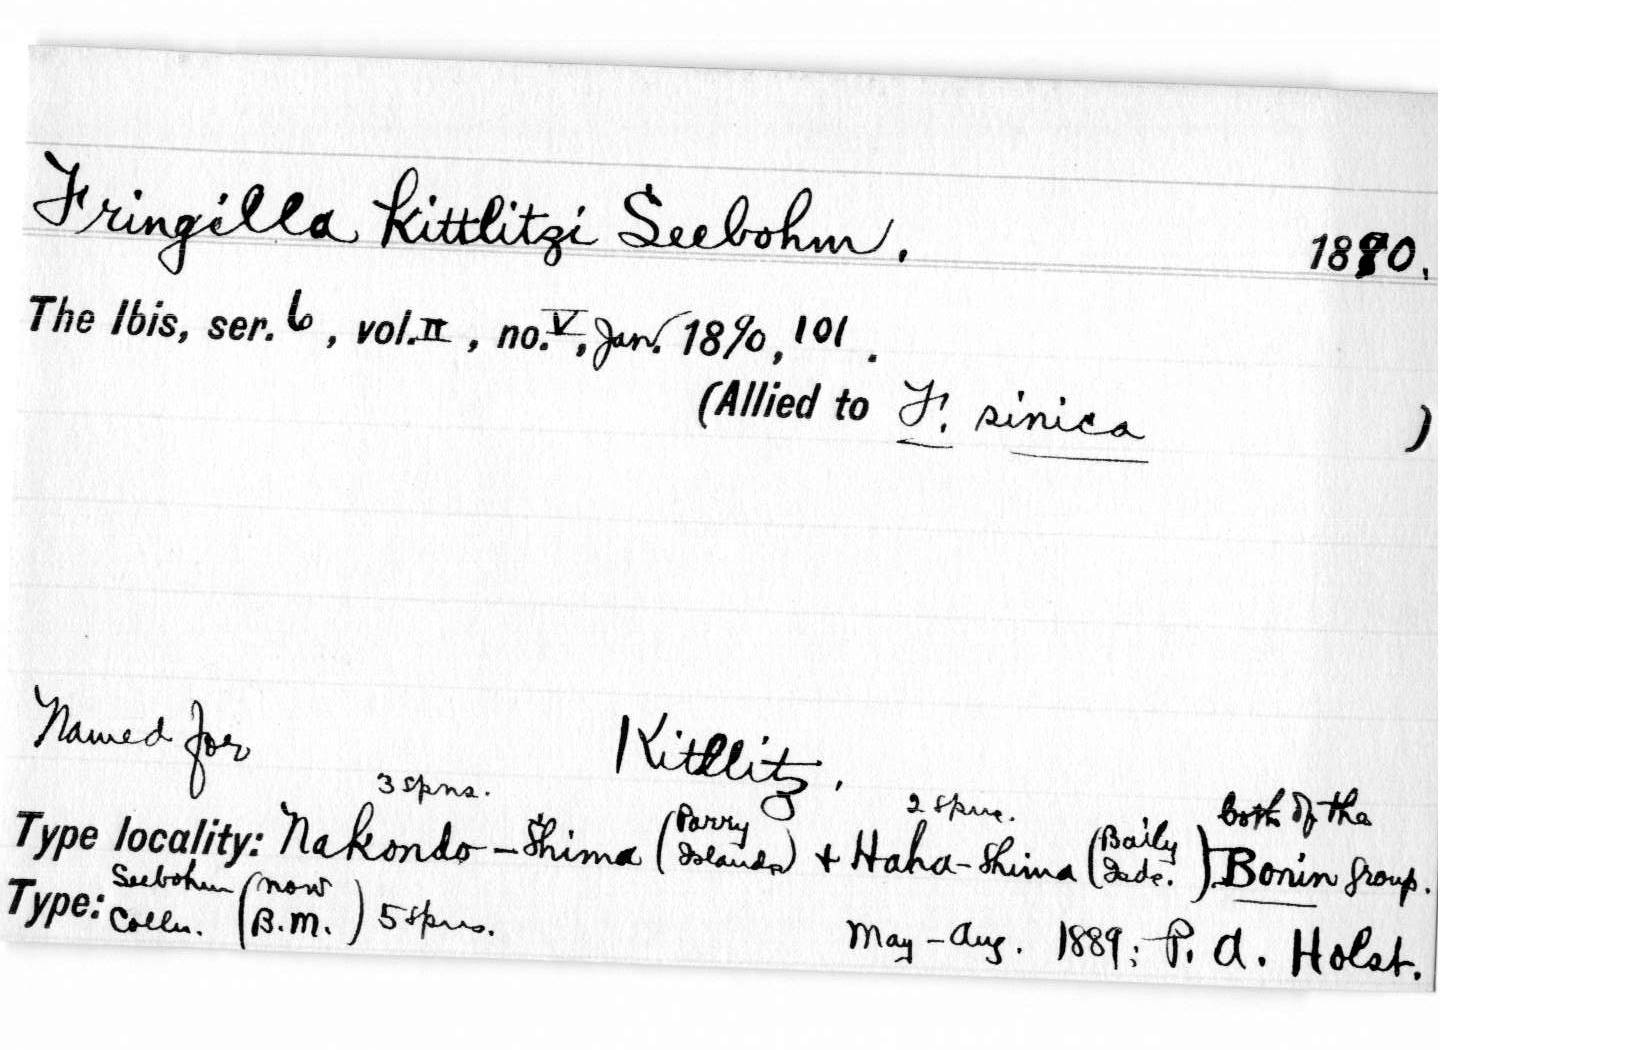 Fringilla Kittlitzi Seebohm. 1890.
The Ibis, ser. 6, vol. II, no. V, Jan. 1890, 101.
(Allied to F. sinica )
Named for Kittlitz.
3 spns. 2 spns. both of the
Type locality: Nakondo-Shima (Parry Islands) + Haha-Shima (Baily Isds.) Bonin group.
Type: Seebohm Colln. (now B.M.) 5 spns.
May-Aug. 1889: P. A. Holst.